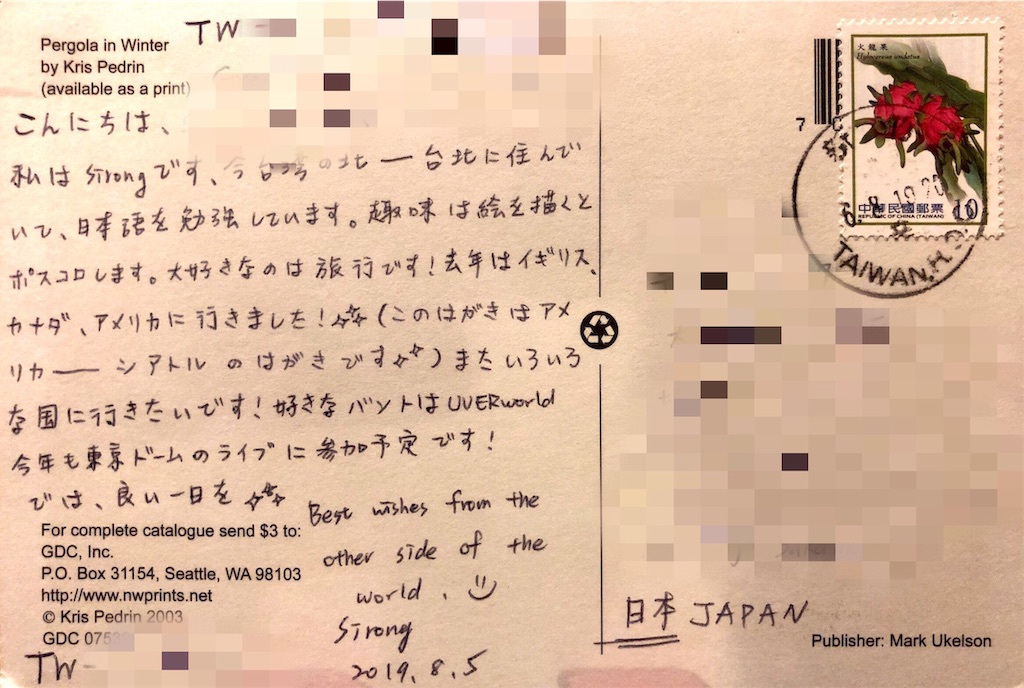 TW
Pergola in Winter
by Kris Pedrin
(available as a print)
こんにちは、
私は Strongです、今台湾の北 ― 台北に住んで
いて、日本語を勉強しています。趣味は絵を描くと
ポスコロします。大好きなのは旅行です！去年はイギリス、
カナダ、アメリカに行きました！(このはがきはアメ
リカ ― シアトルのはがきです)またいろいろ
な国に行きたいです！好きなバントはUVERworld
今年も東京ドームのライブに参加予定です！
では、良い一日を
Best wishes from the
other side of the
world.
Strong
2019.8.5
For complete catalogue send $3 to:
GDC, Inc.
P.O. Box 31154, Seattle, WA 98103
http://www.nwprints.net
© Kris Pedrin 2003
GDC 075
TW
7
火龍果
Hylocereus undatus
中華民國郵票 10
REPUBLIC OF CHINA (TAIWAN)
TAIWAN, R.O.C.
日本 JAPAN
Publisher: Mark Ukelson